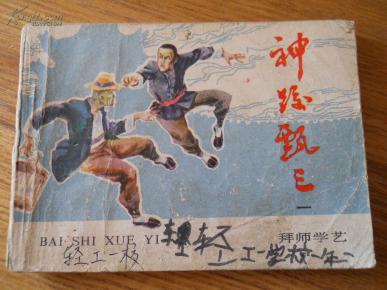 神跤甄三
一
BAI SHI XUE YI
拜师学艺
轻工一板
轻轻
工一学校一年一